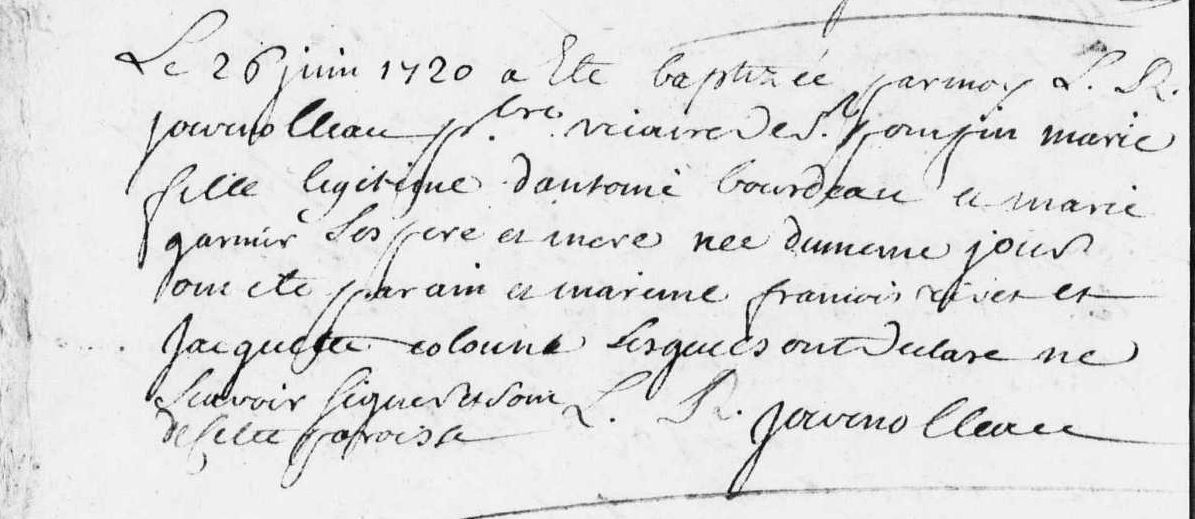 Le 26 juin 1720 a Ete baptizée par moy L. R.
journolleau pbre. viciaire de St. pompin marie
fille legitime dantoine bourdeau et marie
garnier Ses pere et mere nee du meme jour
ont ete parain et mareine francois rivet et
Jacquette colonne Lesquels ont declare ne
scavoir signer et sont L. R. journolleau
de cette paroisse